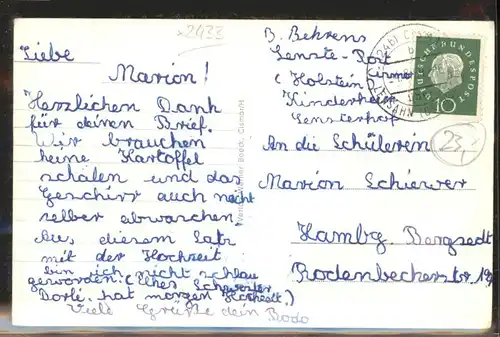 2433
Liebe
Marion!
Herzlichen Dank
für deinen Brief.
Wir brauchen
keine Kartoffel
schälen und das
Geschirr auch nicht
selber abwaschen.
Au, diesem Satz
mit der Hochzeit
bin ich nicht schlau
geworden. (Elkes Schwester
Dorle hat morgen Hochzeit.)
Viele Grüße dein Bodo
Verlag Werner Beeck, Cismar/H.
B. Behrens
Lenste-Post
(Holstein Cismar
Kinderheim
Lensterhof
DEUTSCHE BUNDESPOST
10
23,-
An die Schülerin
Marion Schiewer
Hambg. Bergedf
Rodenbeckerstr.